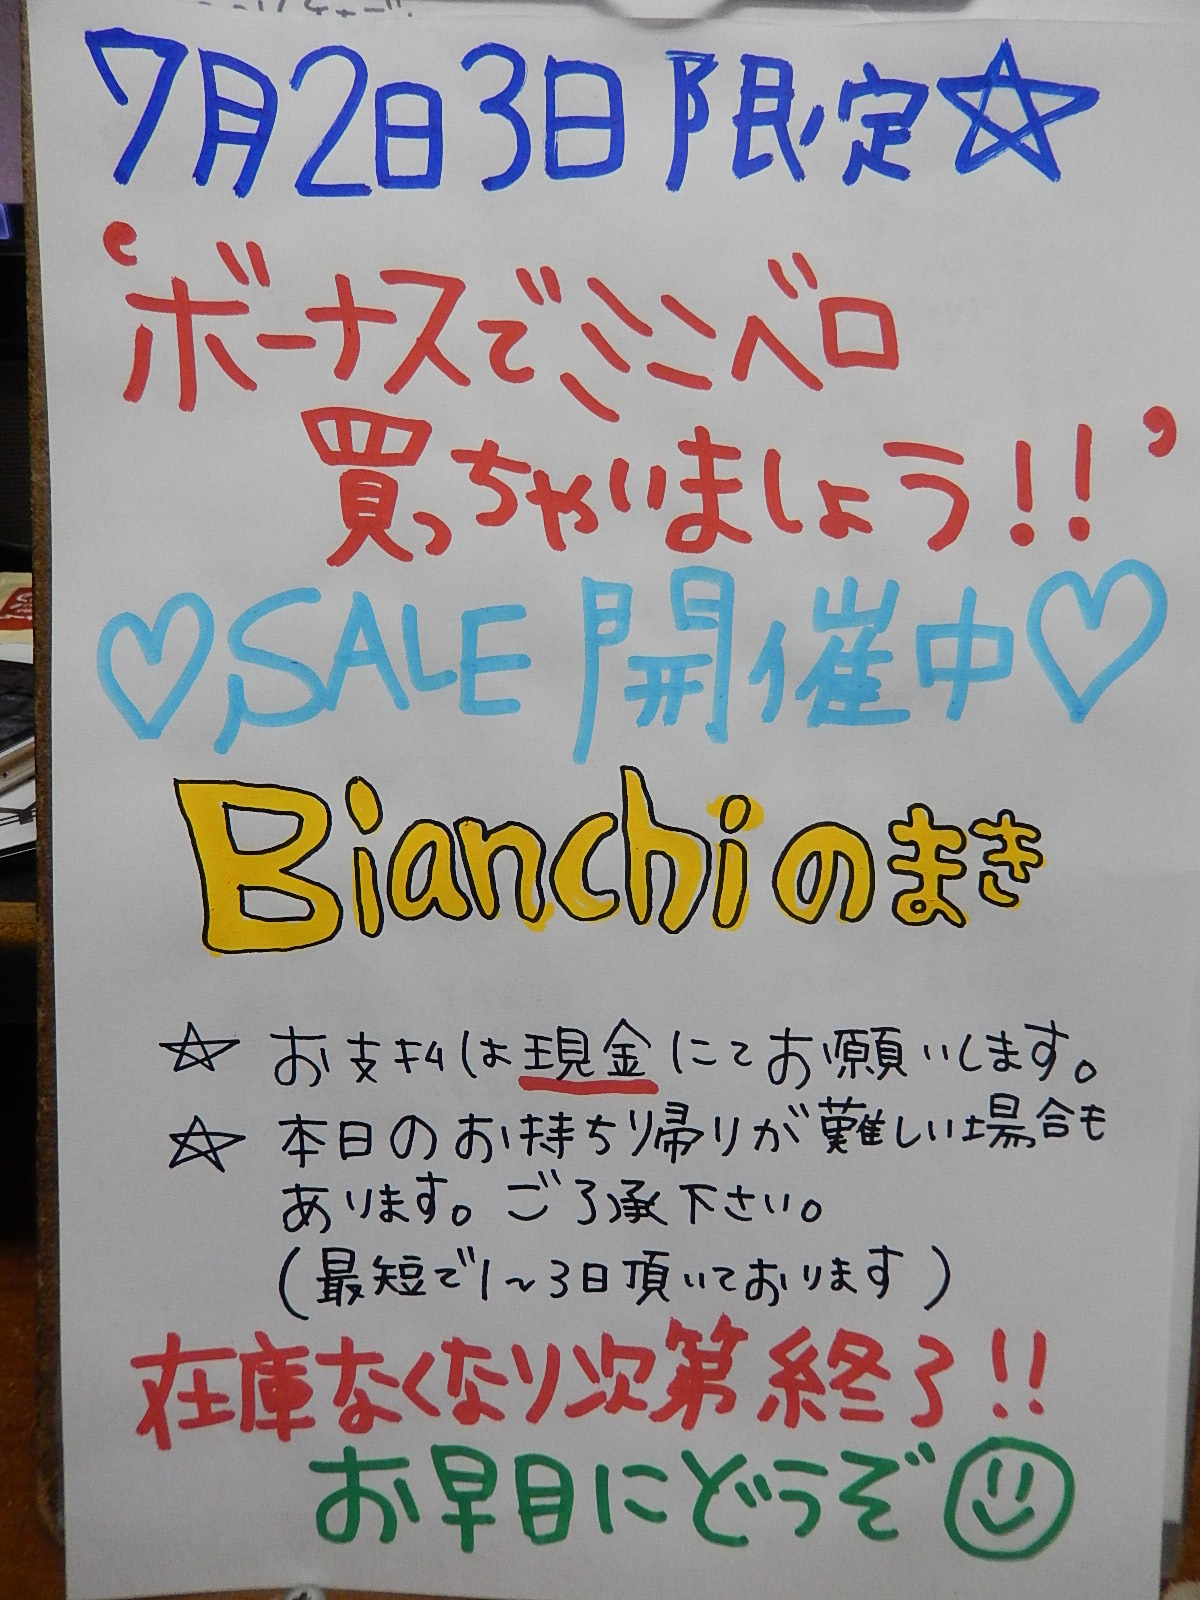 7月2日3日限定☆
‘ボーナスでミニベロ
買っちゃいましょう!!’
♡SALE開催中♡
Bianchiのまき
☆ お支払は現金にてお願いします。
☆ 本日のお持ち帰りが難しい場合も
あります。ご了承下さい。
(最短で1~3日頂いております)
在庫なくなり次第終了!!
お早目にどうぞ